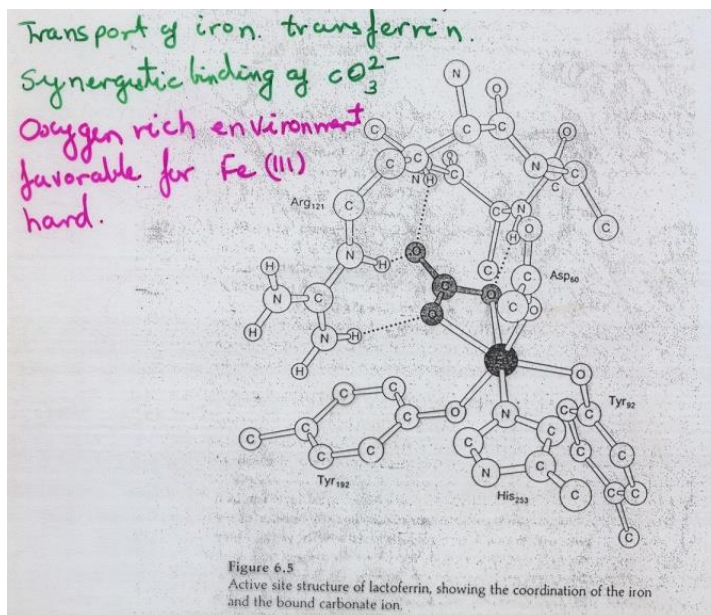 Transport of iron. transferrin.
Synergistic binding of CO₃²⁻
Oxygen rich environment
favorable for Fe (III)
hard.
Arg₁₂₁
Asp₆₀
Tyr₉₂
Tyr₁₉₂
His₂₅₃
Figure 6.5
Active site structure of lactoferrin, showing the coordination of the iron
and the bound carbonate ion.